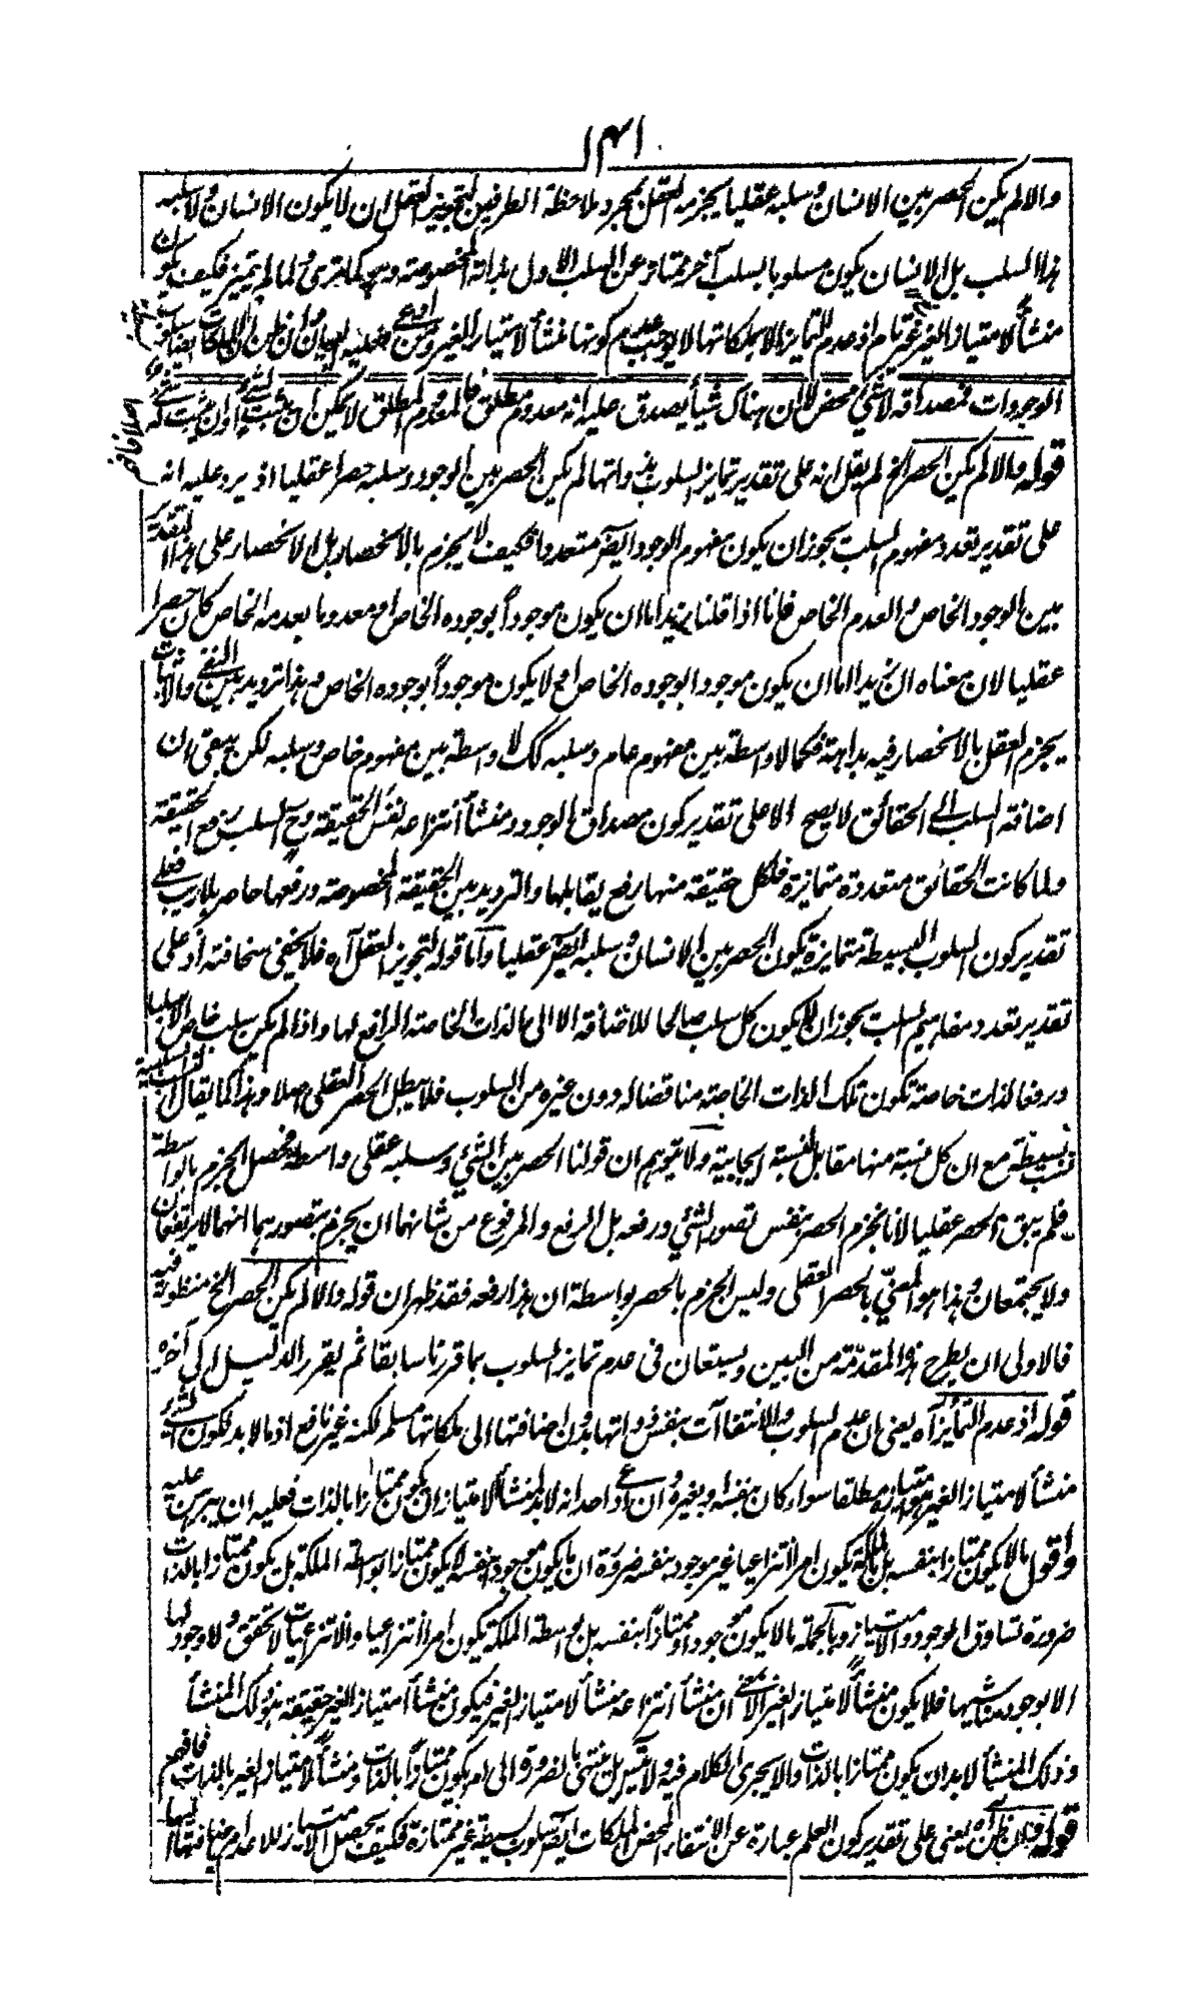 ١٣١
والا لم يكن الحصر بين الانسان وسلبه عقليا يجزم به العقل بمجرد ملاحظة الطرفين لتجويز العقل ان لا يكون الانسان ولا سلبه
هذا السلب بل الانسان يكون مسلوبا بسلب آخر ممتاز عن السلب الاول بذاته المخصوصة وهو كما ترى ولما لم يتميز فكيف يكون
منشأ لامتياز الغير غير تام اذ عدم التمايز الا بملكاتها لا يوجب عدم كونها منشأ لامتياز الغير ومن ادعى فعليه البيان فان ظن ان الملكات ايضا سلوب
الوجودات فمصداقه لا شيء محض لا ان هناك شيأ يصدق عليه انه معدوم مطلق فالمعدوم المطلق لا يمكن ان يثبت لشيء او ان يثبت له شيء
اصلا فافهم
قوله والا لم يكن الحصر الخ لم يقل انه على تقدير تمايز السلوب بذواتها لم يكن الحصر بين الوجود وسلبه حصرا عقليا اذ يرد عليه انه
على تقدير تعدد مفهوم السلب يجوز ان يكون مفهوم الوجود ايضا متعددا فكيف لا يجزم بالانحصار بل الانحصار على هذا التقدير
بين الوجود الخاص والعدم الخاص فانا اذا قلنا زيد اما ان يكون موجودا بوجوده الخاص او معدوما بعدمه الخاص كان حصرا
عقليا لان معناه ان زيدا اما ان يكون موجودا بوجوده الخاص او لا يكون موجودا بوجوده الخاص وهذا ترديد بين النفي والاثبات
يجزم العقل بالانحصار فيه بداهة فكما لا واسطة بين مفهوم عام وسلبه كك لا واسطة بين مفهوم خاص وسلبه لكن يبقى ان
اضافة السلب الى الحقائق لا يصح الا على تقدير كون مصداق الوجود ومنشأ انتزاعه نفس الحقيقة وح السلب رفع الحقيقة
ولما كانت الحقائق متعددة متمايزة فلكل حقيقة منها رفع يقابلها والترديد بين الحقيقة المخصوصة ورفعها حاصر بلا ريب فعلى
تقدير كون السلوب البسيطة متمايزة يكون الحصر بين الانسان وسلبه ايضا عقليا واما قوله لتجويز العقل آه فلا يخفى سخافته اذ على
تقدير تعدد مفاهيم السلب يجوز ان لا يكون كل سلب صالحا للاضافة الا الى الذات الخاصة الرافع لها واذا لم يكن سلب خاص الا سلبا
ورفعا لذات خاصة تكون تلك الذات الخاصة مناقضا له دون غيره من السلوب فلا يبطل الحصر العقلي اصلا وهذا كما يقال ان النسب السلبية
نسب بسيطة مع ان كل نسبة منها مقابل للنسبة الايجابية ولا يتوهم ان قولنا الحصر بين الشيء وسلبه عقلي واسطة فحصل الجزم بالواسطة
فلم يبق الحصر عقليا لانا نجزم الحصر بنفس تصور الشيء ورفعه بل الرفع والمرفوع من شانهما ان يجزم بتصورهما انهما لا يرتفعان
ولا يجتمعان وهذا هو المعني بالحصر العقلي وليس الجزم بالحصر بواسطة ان هذا رفعه فقد ظهر ان قوله والا لم يكن الحصر الخ منظور فيه
فالاولى ان يطرح هذه المقدمة من البين ويستعان في عدم تمايز السلوب بما قررنا سابقا ثم يقرر الدليل الى آخره
قوله اذ عدم التمايز آه يعني ان عدم السلوب والانتفاآت بنفس ذواتها بدون اضافتها الى ملكاتها مسلم لكنه غير نافع اذ ما لا بد لكون الشيء
منشأ لامتياز الغير هو امتيازه مطلقا سواء كان بنفسه او بغيره وان ادعى احد انه لا بد لمنشأ الامتياز ان يكون ممتازا بالذات فعليه ان يبرهن عليه
واقول ما لا يكون ممتازا بنفسه بل بالملكة يكون امرا انتزاعيا غير موجود بنفسه ضرورة ان ما يكون موجودا بنفسه لا يكون ممتازا بواسطة الملكة بل يكون ممتازا بالذات
ضرورة تساوق الوجود والامتياز وبالجملة ما لا يكون موجودا وممتازا بنفسه بل بواسطة الملكة يكون امرا انتزاعيا والانتزاعيات لا تحقق ولا وجود لها
الا بوجود مناشيها فلا يكون منشأ لامتياز الغير الا بمعنى ان منشأ انتزاعه منشأ لامتياز الغير فيكون منشأ امتياز الغير حقيقة هو ذلك المنشأ
وذلك المنشأ لا بد ان يكون ممتازا بالذات والا يجرى الكلام فيه ولا يتسلسل بل ينتهي بالضرورة الى امر يكون ممتازا بالذات ومنشأ لامتياز الغير بالذات فافهم
قوله فان ظن آه يعني على تقدير كون العلم عبارة عن الانتفاء المحض الملكات ايضا سلوب بسيطة غير ممتازة فكيف يحصل الامتياز للاعدام باضافتها اليها